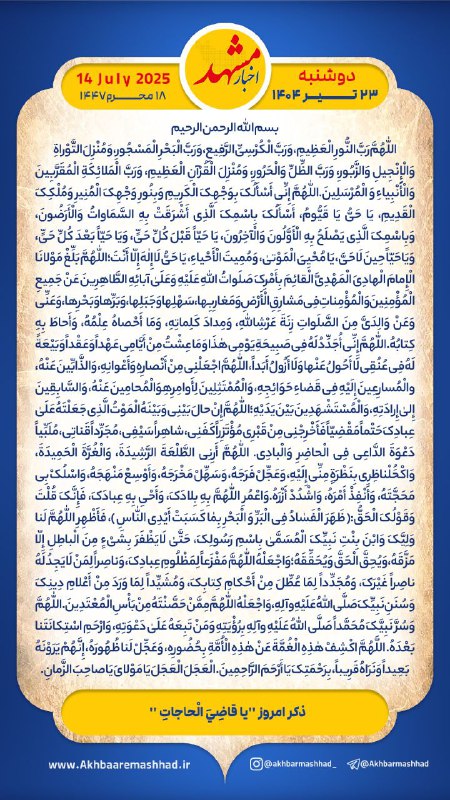 اخبار مشهد
دوشنبه
۲۳ تیر ۱۴۰۴
14 July 2025
۱۸ محرم ۱۴۴۷
بسم الله الرحمن الرحیم
اللّٰهُمَّ رَبَّ النُّورِ الْعَظِیمِ، وَرَبَّ الْکُرْسِیِّ الرَّفِیعِ، وَرَبَّ الْبَحْرِ الْمَسْجُورِ، وَمُنْزِلَ التَّوْراةِ
وَالْإِنْجِیلِ وَالزَّبُورِ، وَرَبَّ الظِّلِّ وَالْحَرُورِ، وَمُنْزِلَ الْقُرْآنِ الْعَظِیمِ، وَرَبَّ الْمَلائِکَةِ الْمُقَرَّبِینَ
وَالْأَنْبِیاءِ وَالْمُرْسَلِینَ. اللّٰهُمَّ إِنِّی أَسْأَلُکَ بِوَجْهِکَ الْکَرِیمِ وَبِنُورِ وَجْهِکَ الْمُنِیرِ وَمُلْکِکَ
الْقَدِیمِ، یَا حَیُّ یَا قَیُّومُ، أَسْأَلُکَ بِاسْمِکَ الَّذِی أَشْرَقَتْ بِهِ السَّمَاواتُ وَالْأَرَضُونَ،
وَبِاسْمِکَ الَّذِی یَصْلَحُ بِهِ الْأَوَّلُونَ وَالْآخِرُونَ، یَا حَیّاً قَبْلَ کُلِّ حَیٍّ، وَیَا حَیّاً بَعْدَ کُلِّ حَیٍّ،
وَیَا حَیّاً حِینَ لَا حَیَّ، یَا مُحْیِیَ الْمَوْتیٰ، وَمُمِیتَ الْأَحْیاءِ، یَا حَیُّ لَاإِلٰهَ إِلّا أَنْتَ؛ اللّٰهُمَّ بَلِّغْ مَوْلانَا
الْإِمامَ الْهادِیَ الْمَهْدِیَّ الْقائِمَ بِأَمْرِکَ صَلَواتُ اللّٰهِ عَلَیْهِ وَعَلَیٰ آبائِهِ الطَّاهِرِینَ عَنْ جَمِیعِ
الْمُؤْمِنِینَ وَالْمُؤْمِناتِ فِی مَشارِقِ الْأَرْضِ وَمَغارِبِها، سَهْلِها وَجَبَلِها، وَبَرِّها وَبَحْرِها، وَعَنِّی
وَعَنْ وَالِدَیَّ مِنَ الصَّلَواتِ زِنَةَ عَرْشِ اللّٰهِ، وَمِدادَ کَلِماتِهِ، وَمَا أَحْصاهُ عِلْمُهُ، وَأَحاطَ بِهِ
کِتابُهُ. اللّٰهُمَّ إِنِّی أُجَدِّدُ لَهُ فِی صَبِیحَةِ یَوْمِی هٰذَا وَمَا عِشْتُ مِنْ أَیَّامِی عَهْداً وَعَقْداً وَبَیْعَةً
لَهُ فِی عُنُقِی لَاأَحُولُ عَنْها وَلَا أَزُولُ أَبَداً، اللّٰهُمَّ اجْعَلْنِی مِنْ أَنْصارِهِ وَأَعْوانِهِ، وَالذَّابِّینَ عَنْهُ،
وَالْمُسارِعِینَ إِلَیْهِ فِی قَضاءِ حَوَائِجِهِ، وَالْمُمْتَثِلِینَ لِأَوامِرِهِ وَالْمُحامِینَ عَنْهُ، وَالسَّابِقِینَ
إِلیٰ إِرادَتِهِ، وَالْمُسْتَشْهَدِینَ بَیْنَ یَدَیْهِ؛ اللّٰهُمَّ إِنْ حالَ بَیْنِی وَبَیْنَهُ الْمَوْتُ الَّذِی جَعَلْتَهُ عَلَیٰ
عِبادِکَ حَتْماً مَقْضِیّاً فَأَخْرِجْنِی مِنْ قَبْرِی مُؤْتَزِراً کَفَنِی، شاهِراً سَیْفِی، مُجَرِّداً قَناتِی، مُلَبِّیاً
دَعْوَةَ الدَّاعِی فِی الْحاضِرِ وَالْبادِی. اللّٰهُمَّ أَرِنِی الطَّلْعَةَ الرَّشِیدَةَ، وَالْغُرَّةَ الْحَمِیدَةَ،
وَاکْحُلْ ناظِرِی بِنَظْرَةٍ مِنِّی إِلَیْهِ، وَعَجِّلْ فَرَجَهُ، وَسَهِّلْ مَخْرَجَهُ، وَأَوْسِعْ مَنْهَجَهُ، وَاسْلُکْ بِی
مَحَجَّتَهُ، وَأَنْفِذْ أَمْرَهُ، وَاشْدُدْ أَزْرَهُ. وَاعْمُرِ اللّٰهُمَّ بِهِ بِلادَکَ، وَأَحْیِ بِهِ عِبادَکَ، فَإِنَّکَ قُلْتَ
وَقَوْلُکَ الْحَقُّ: ﴿ظَهَرَ الْفَسٰادُ فِی الْبَرِّ وَ الْبَحْرِ بِمٰا کَسَبَتْ أَیْدِی النّٰاسِ﴾، فَأَظْهِرِ اللّٰهُمَّ لَنا
وَلِیَّکَ وَابْنَ بِنْتِ نَبِیِّکَ الْمُسَمَّىٰ بِاسْمِ رَسُولِکَ، حَتَّیٰ لَایَظْفَرَ بِشَیْءٍ مِنَ الْباطِلِ إِلّا
مَزَّقَهُ، وَیُحِقَّ الْحَقَّ وَیُحَقِّقَهُ؛ وَاجْعَلْهُ اللّٰهُمَّ مَفْزَعاً لِمَظْلُومِ عِبادِکَ، وَناصِراً لِمَنْ لَایَجِدُ لَهُ
ناصِراً غَیْرَکَ، وَمُجَدِّداً لِمَا عُطِّلَ مِنْ أَحْکامِ کِتابِکَ، وَمُشَیِّداً لِمَا وَرَدَ مِنْ أَعْلامِ دِینِکَ
وَسُنَنِ نَبِیِّکَ صَلَّی اللّٰهُ عَلَیْهِ وَآلِهِ، وَاجْعَلْهُ اللّٰهُمَّ مِمَّنْ حَصَّنْتَهُ مِنْ بَأْسِ الْمُعْتَدِینَ. اللّٰهُمَّ
وَسُرَّ نَبِیَّکَ مُحَمَّداً صَلَّی اللّٰهُ عَلَیْهِ وَآلِهِ بِرُؤْیَتِهِ وَمَنْ تَبِعَهُ عَلَیٰ دَعْوَتِهِ، وَارْحَمِ اسْتِکانَتَنا
بَعْدَهُ. اللّٰهُمَّ اکْشِفْ هٰذِهِ الْغُمَّةَ عَنْ هٰذِهِ الْأُمَّةِ بِحُضُورِهِ، وَعَجِّلْ لَنا ظُهُورَهُ، إِنَّهُمْ یَرَوْنَهُ
بَعِیداً وَنَرَاهُ قَرِیباً، بِرَحْمَتِکَ یَا أَرْحَمَ الرَّاحِمِینَ. الْعَجَلَ الْعَجَلَ یَا مَوْلایَ یَا صاحِبَ الزَّمانِ.
ذکر امروز "یا قاضِیَ الْحاجاتِ "
www.Akhbaaremashhad.ir
@akhbarmashhad_
@Akhbarmashhad